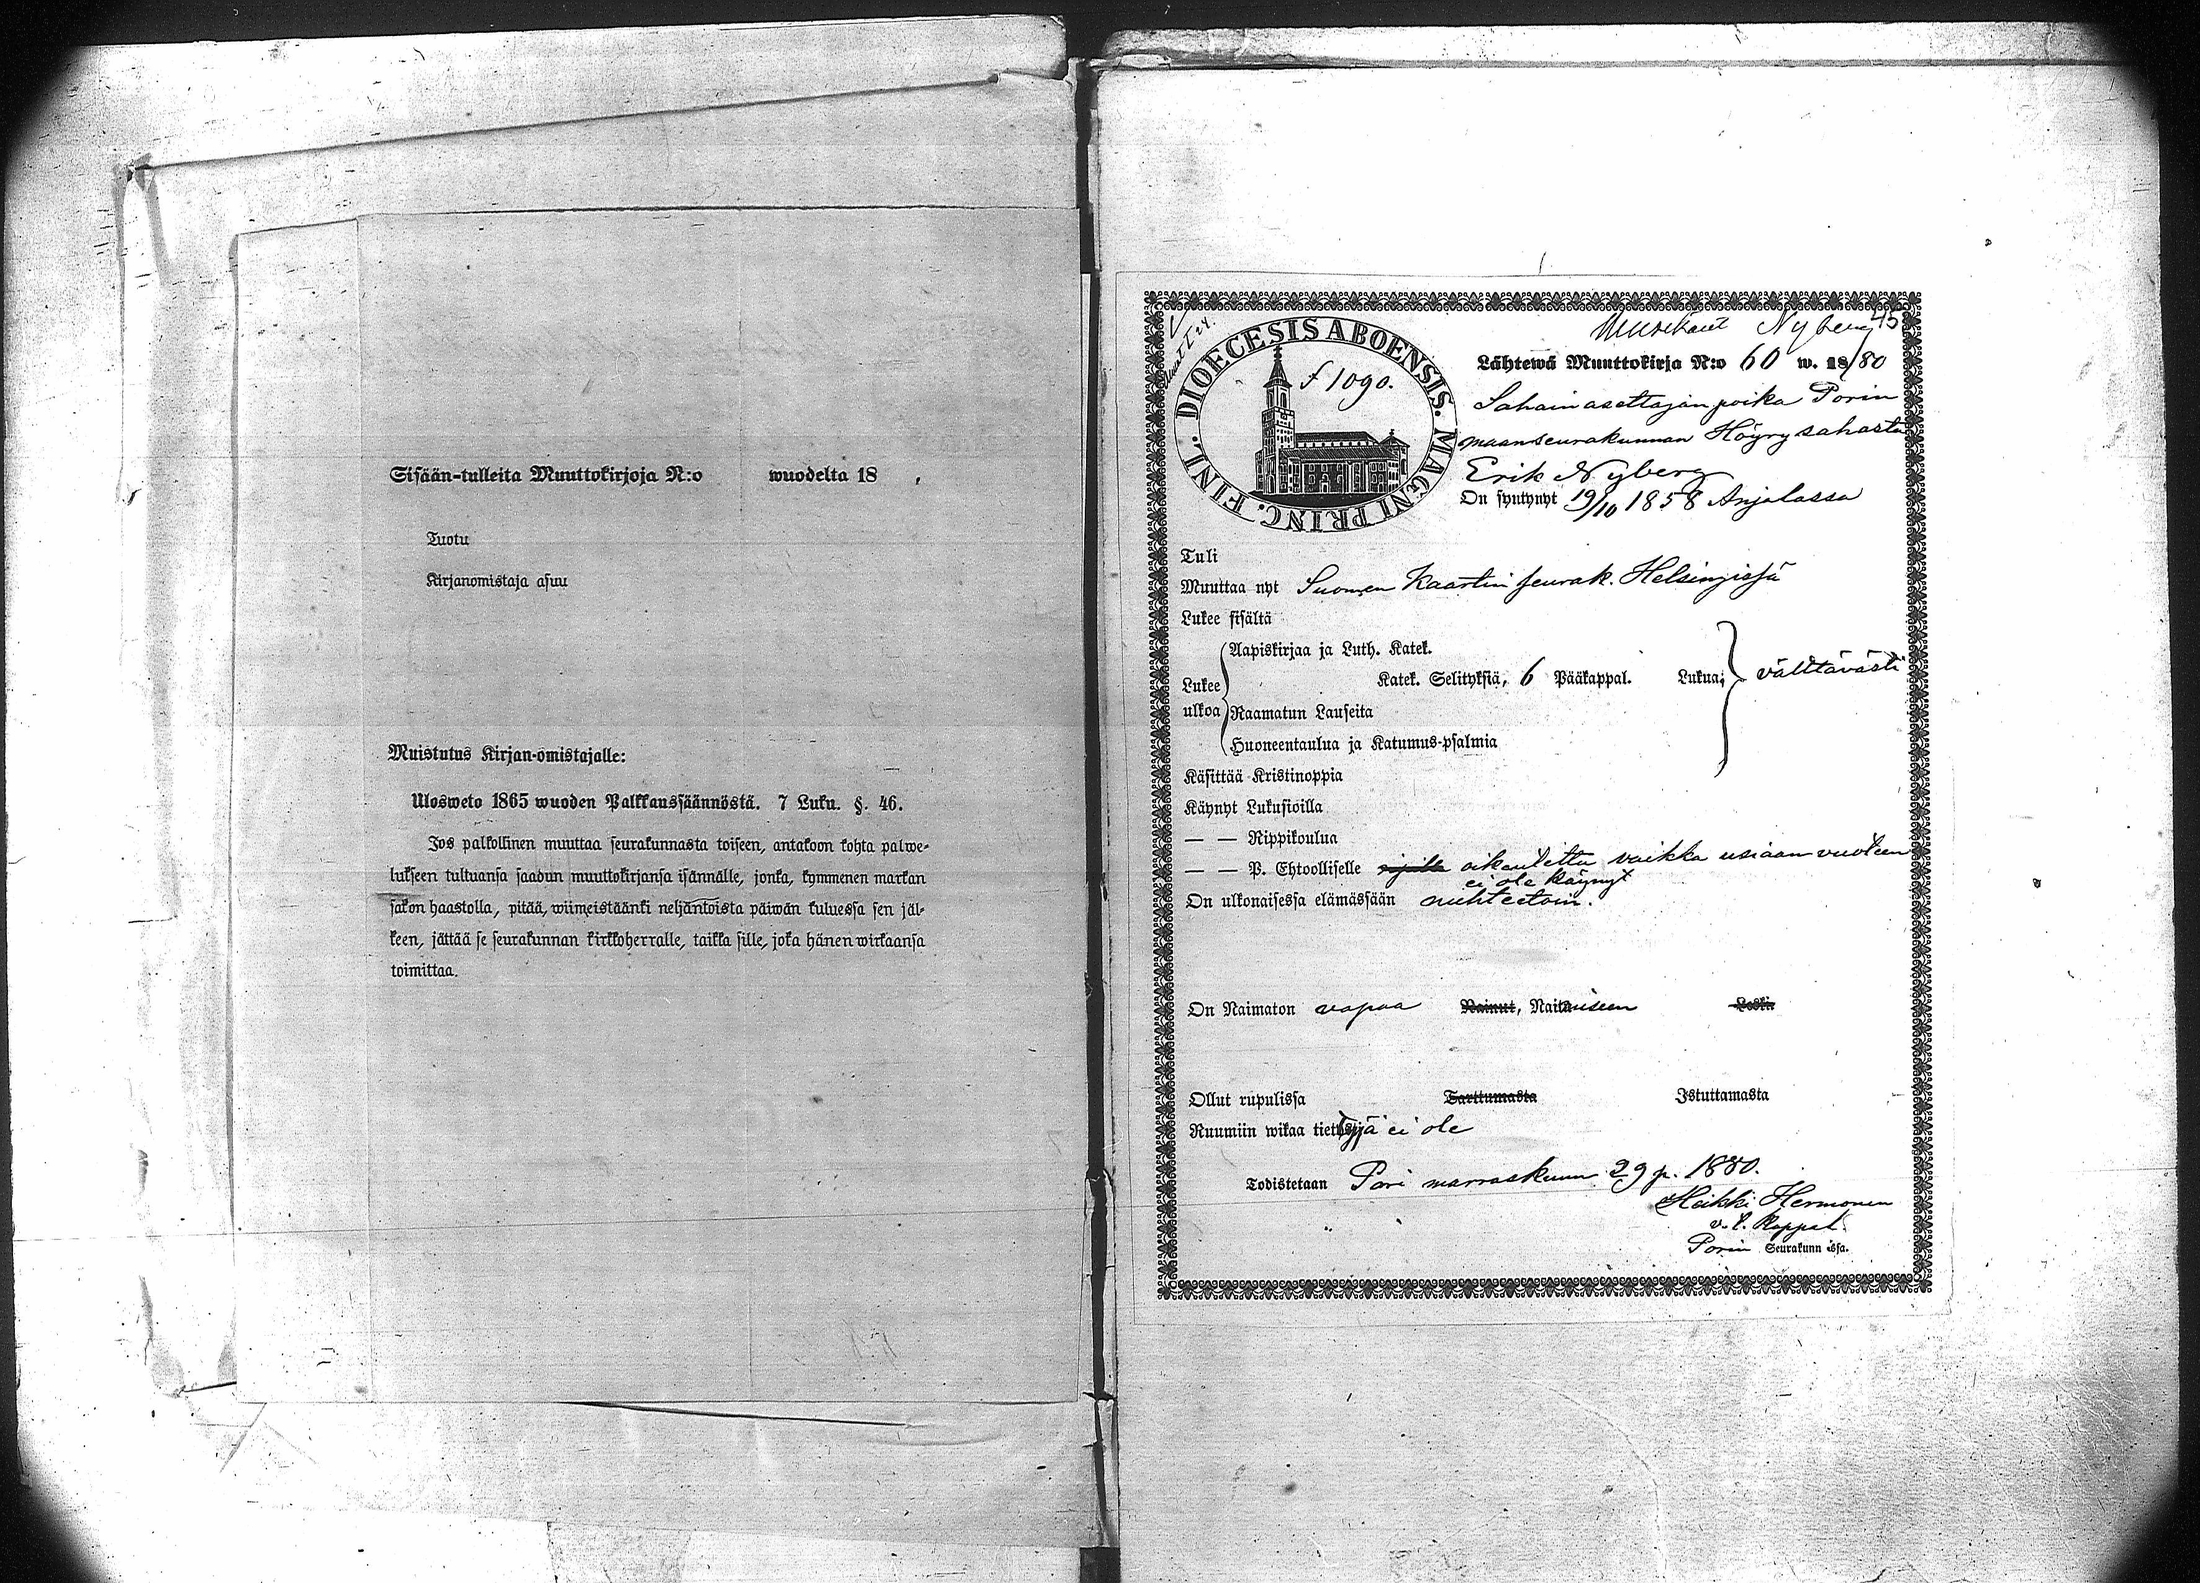 Sisään-tulleita Muuttokirjoja N:o wuodelta 18 .
Tuotu
Kirjanomistaja asuu
Muistutus Kirjan-omistajalle:
Ulosweto 1865 wuoden Palkkaussäännöstä. 7 Luku. §. 46.
Jos palkollinen muuttaa seurakunnasta toiseen, antakoon kohta palwe-
lukseen tultuansa saadun muuttokirjansa isännälle, jonka, kymmenen markan
sakon haastolla, pitää, wiimeistäänki neljäntoista päiwän kuluessa sen jäl-
keen, jättää se seurakunnan kirkkoherralle, taikka sille, joka hänen wirkaansa
toimittaa.
45
Nyberg
DIOECESIS ABOENSIS. MAGNI PRINC. FINL.
f 1090.
Lähtewä Muuttokirja N:o 60 w. 18/80
Sahain asettajan poika Porin
maanseurakunnan Höyrysahasta
Erik Nyberg
On syntynyt 19/10 1858 Anjalassa
Tuli
Muuttaa nyt Suomen Kaartin seurak. Helsingissä
Lukee sisältä
Lukee ulkoa
Aapiskirjaa ja Luth. Katek.
Katek. Selityksiä, 6 Pääkappal. Lukua; välttävästi
Raamatun Lauseita
Huoneentaulua ja Katumus-psalmia
Käsittää Kristinoppia
Käynyt Lukusioilla
— — Rippikoulua
— — P. Ehtoolliselle oikeutettu vaikka usiaan vuoteen
ei ole käynyt
On ulkonaisessa elämässään nuhteetoin.
On Naimaton vapaa Nainut, Naimiseen Leski
Ollut rupulissa Tarttumasta Istuttamasta
Ruumiin wikaa tiettyjä ei ole
Todistetaan Pori marraskuun 29 p. 1880.
Heikki Hermonen
v. t. Kappal.
Porin Seurakunnassa.